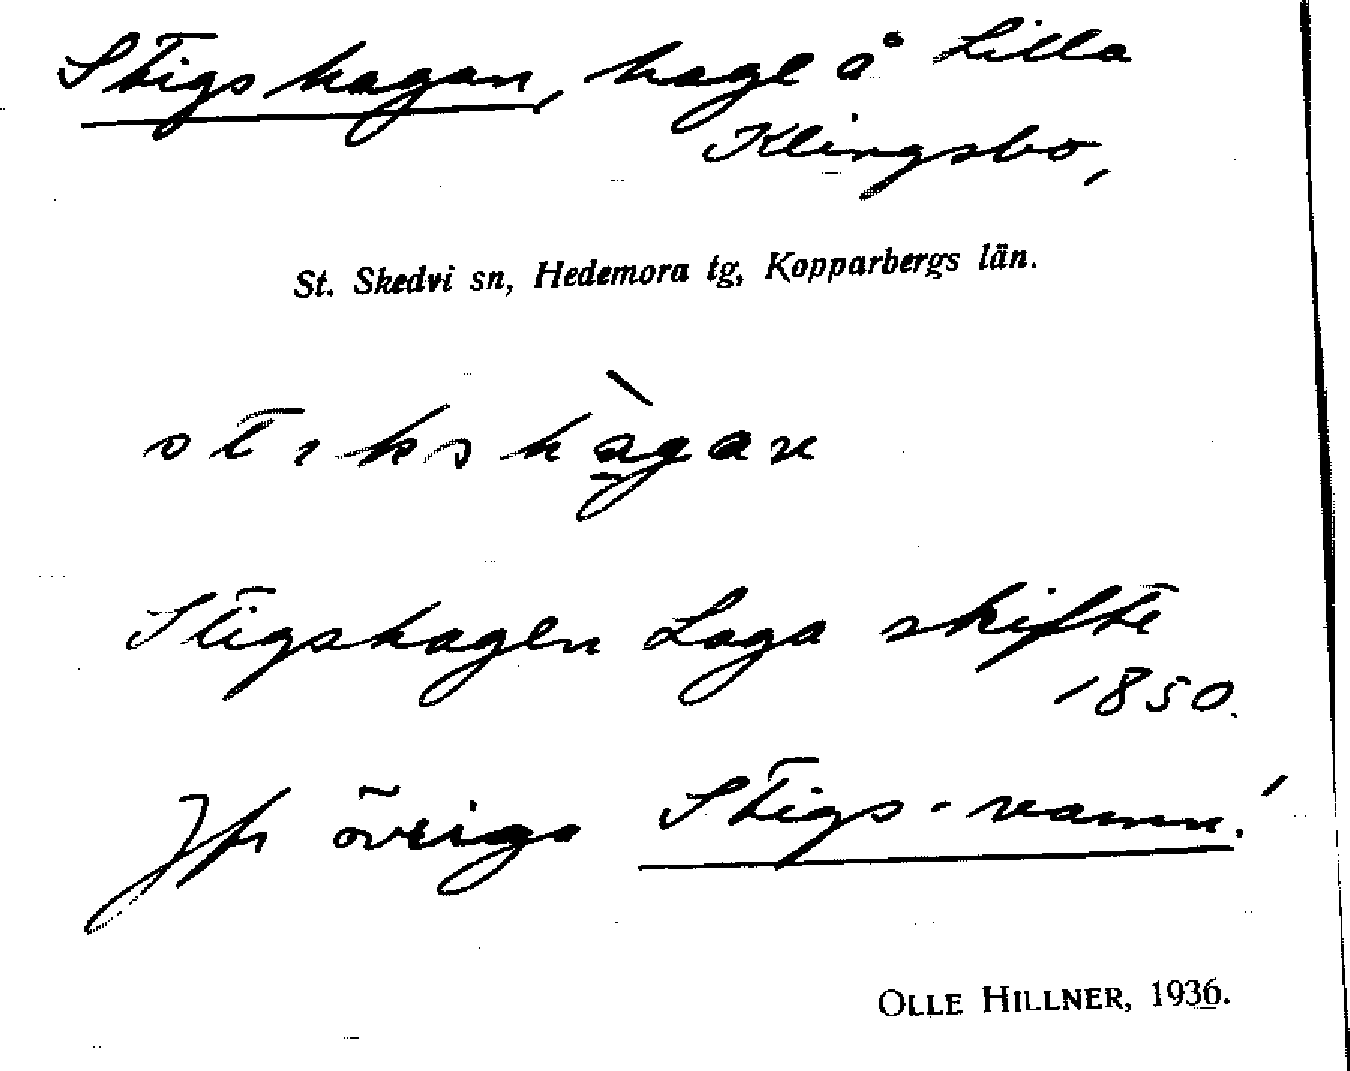 Stigshagan, hage å Lilla
Klingsbo,
St. Skedvi sn, Hedemora tg, Kopparbergs län.
stikshàgan
Stigshagen Laga skifte
1850.
Jfr övriga Stigs-namn!
OLLE HILLNER, 1936.